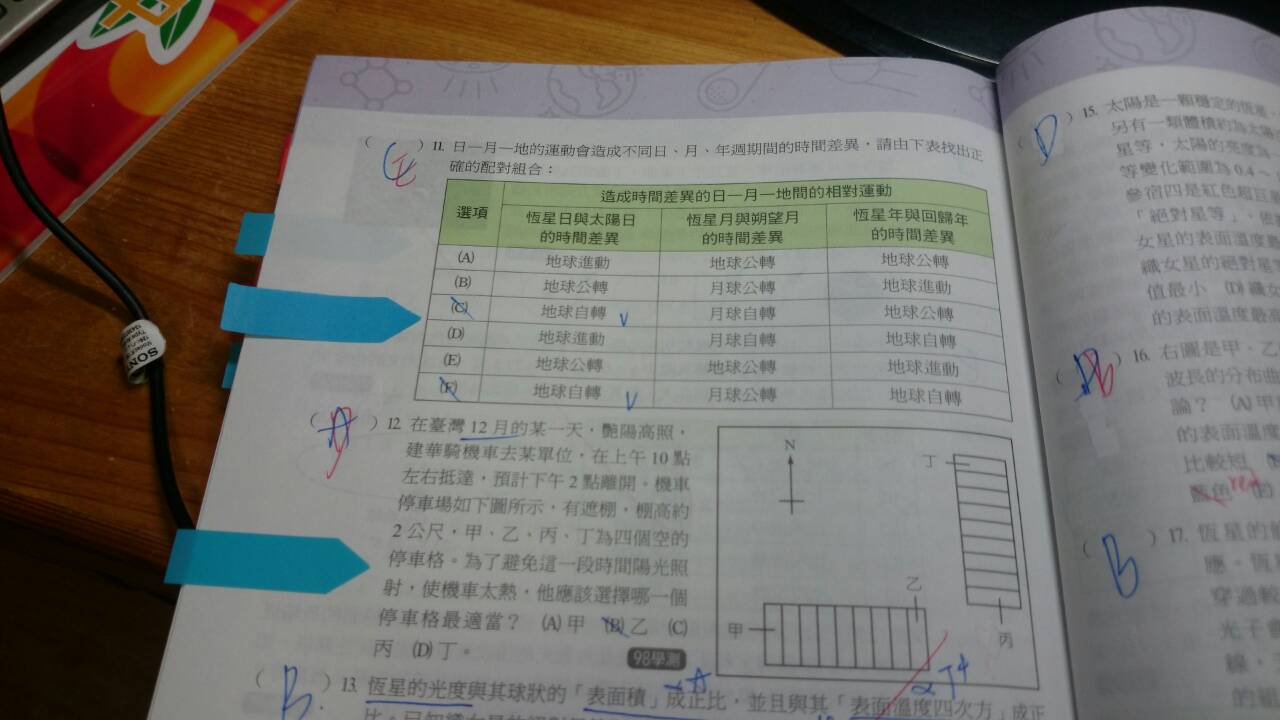 ( E ) 11. 日－月－地的運動會造成不同日、月、年週期間的時間差異，請由下表找出正
確的配對組合：
選項 造成時間差異的日－月－地間的相對運動
恆星日與太陽日的時間差異 恆星月與朔望月的時間差異 恆星年與回歸年的時間差異
(A) 地球進動 地球公轉 地球公轉
(B) 地球公轉 月球公轉 地球進動
(C) 地球自轉 v 月球自轉 地球公轉
(D) 地球進動 月球自轉 地球自轉
(E) 地球公轉 地球公轉 地球進動
(F) 地球自轉 v 月球公轉 地球自轉
( A ) 12. 在臺灣 12 月的某一天，艷陽高照，
建華騎機車去某單位，在上午 10 點
左右抵達，預計下午 2 點離開。機車
停車場如下圖所示，有遮棚，棚高約
2 公尺，甲、乙、丙、丁為四個空的
停車格。為了避免這一段時間陽光照
射，使機車太熱，他應該選擇哪一個
停車格最適當？ (A) 甲 (B) 乙 (C)
丙 (D) 丁。
98學測
N
丁
乙
甲
丙
∝A
∝T4
( B ) 13. 恆星的光度與其球狀的「表面積」成正比，並且與其「表面溫度四次方」成正
( D ) 15. 太陽是一顆穩定的恆星，
另有一類體積約為太陽
星等，太陽的亮度為
等變化範圍為 0.4～
參宿四是紅色超巨星
「絕對星等」，
女星的表面溫度
織女星的絕對星
值最小 (D) 織女
的表面溫度最高
16. 右圖是甲、乙
波長的分布曲
論？ (A) 甲
的表面溫度
比較短
藍色 red (E)
( B ) 17. 恆星的
應。恆
穿過較
光子
線，
的組
SONY